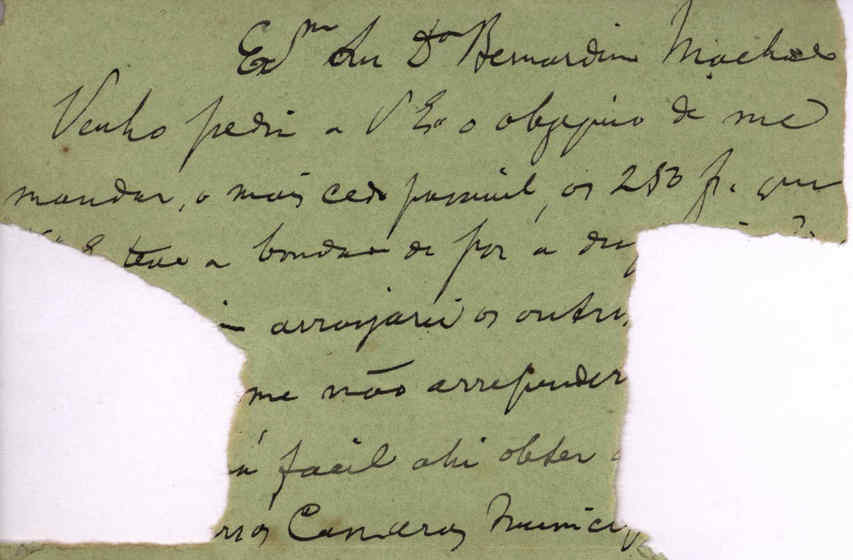 Ex.mo Snr Dor Bernardino Machado
Venho pedir a V Exa o obsequio de me
mandar, o mais cedo possivel, os 250 fr. que
teve a bondade de pôr á
arranjarei os outro
me não arrepender
facil ahi obter
Camaras Munici